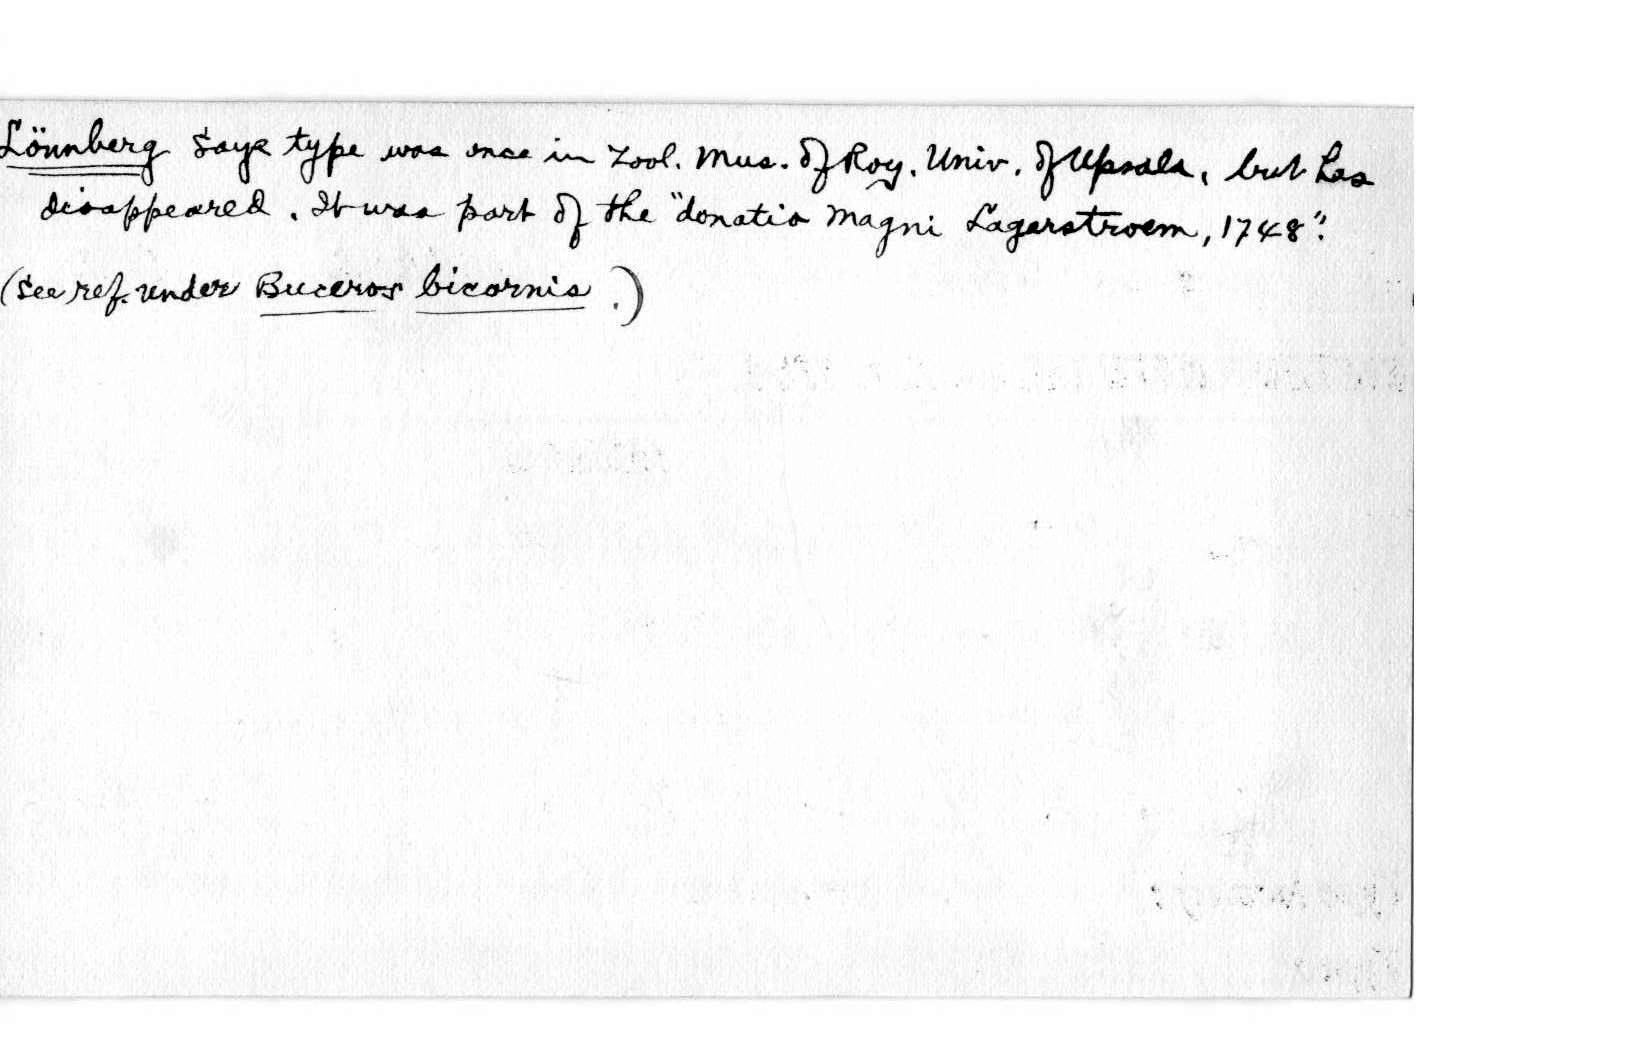 Lönnberg says type was once in Zool. Mus. of Roy. Univ. of Upsala, but has
disappeared. It was part of the "donatio Magni Lagerstroem, 1748".
(See ref. under Buceros bicornis.)